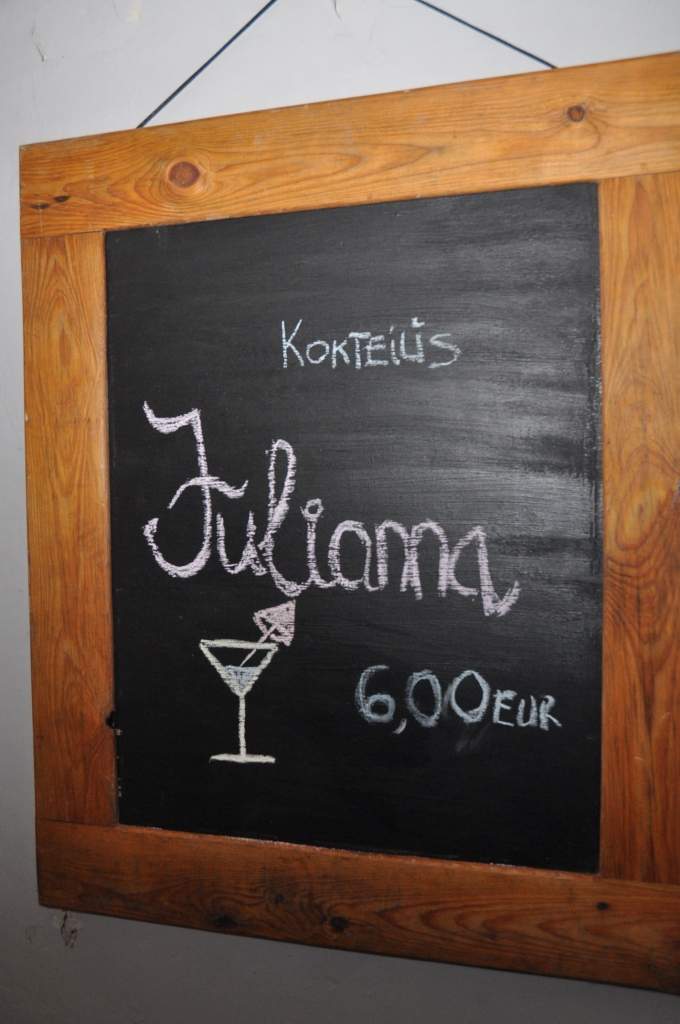 KOKTEILIS
Julianna
6,00 EUR